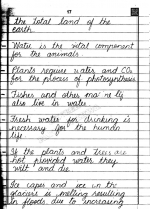 17
the total land of the
earth.
- Water is the vital component
for the animals.
- Plants require water and CO2
for the process of photosynthesis
- Fishes and other may
also live in water.
- Fresh water for drinking is
necessary for the human
life
- If the plants and trees are
not provided water they
will die.
- Ice capes and ice in the
glaciers is melting resulting
in floods due to increasing